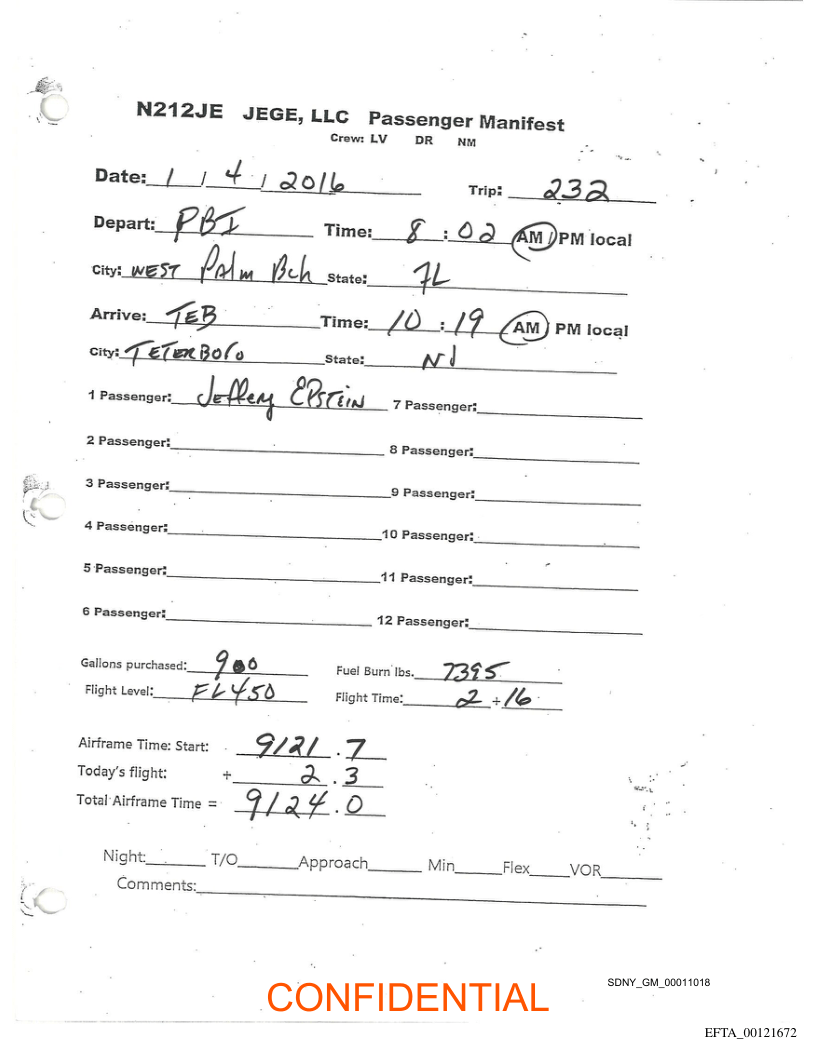 N212JE JEGE, LLC Passenger Manifest
Crew: LV DR NM
Date: 1 / 4 / 2016 Trip: 232
Depart: PBI Time: 8 : 02 AM / PM local
City: WEST Palm Bch State: FL
Arrive: TEB Time: 10 : 19 AM PM local
City: TETERBORO State: NJ
1 Passenger: Jeffery EPSTEIN 7 Passenger:
2 Passenger: 8 Passenger:
3 Passenger: 9 Passenger:
4 Passenger: 10 Passenger:
5 Passenger: 11 Passenger:
6 Passenger: 12 Passenger:
Gallons purchased: 900 Fuel Burn lbs. 7395
Flight Level: FL450 Flight Time: 2 + 16
Airframe Time: Start: 9121 . 7
Today's flight: + 2 . 3
Total Airframe Time = 9124 . 0
Night: T/O Approach Min Flex VOR
Comments:
SDNY_GM_00011018
CONFIDENTIAL
EFTA_00121672